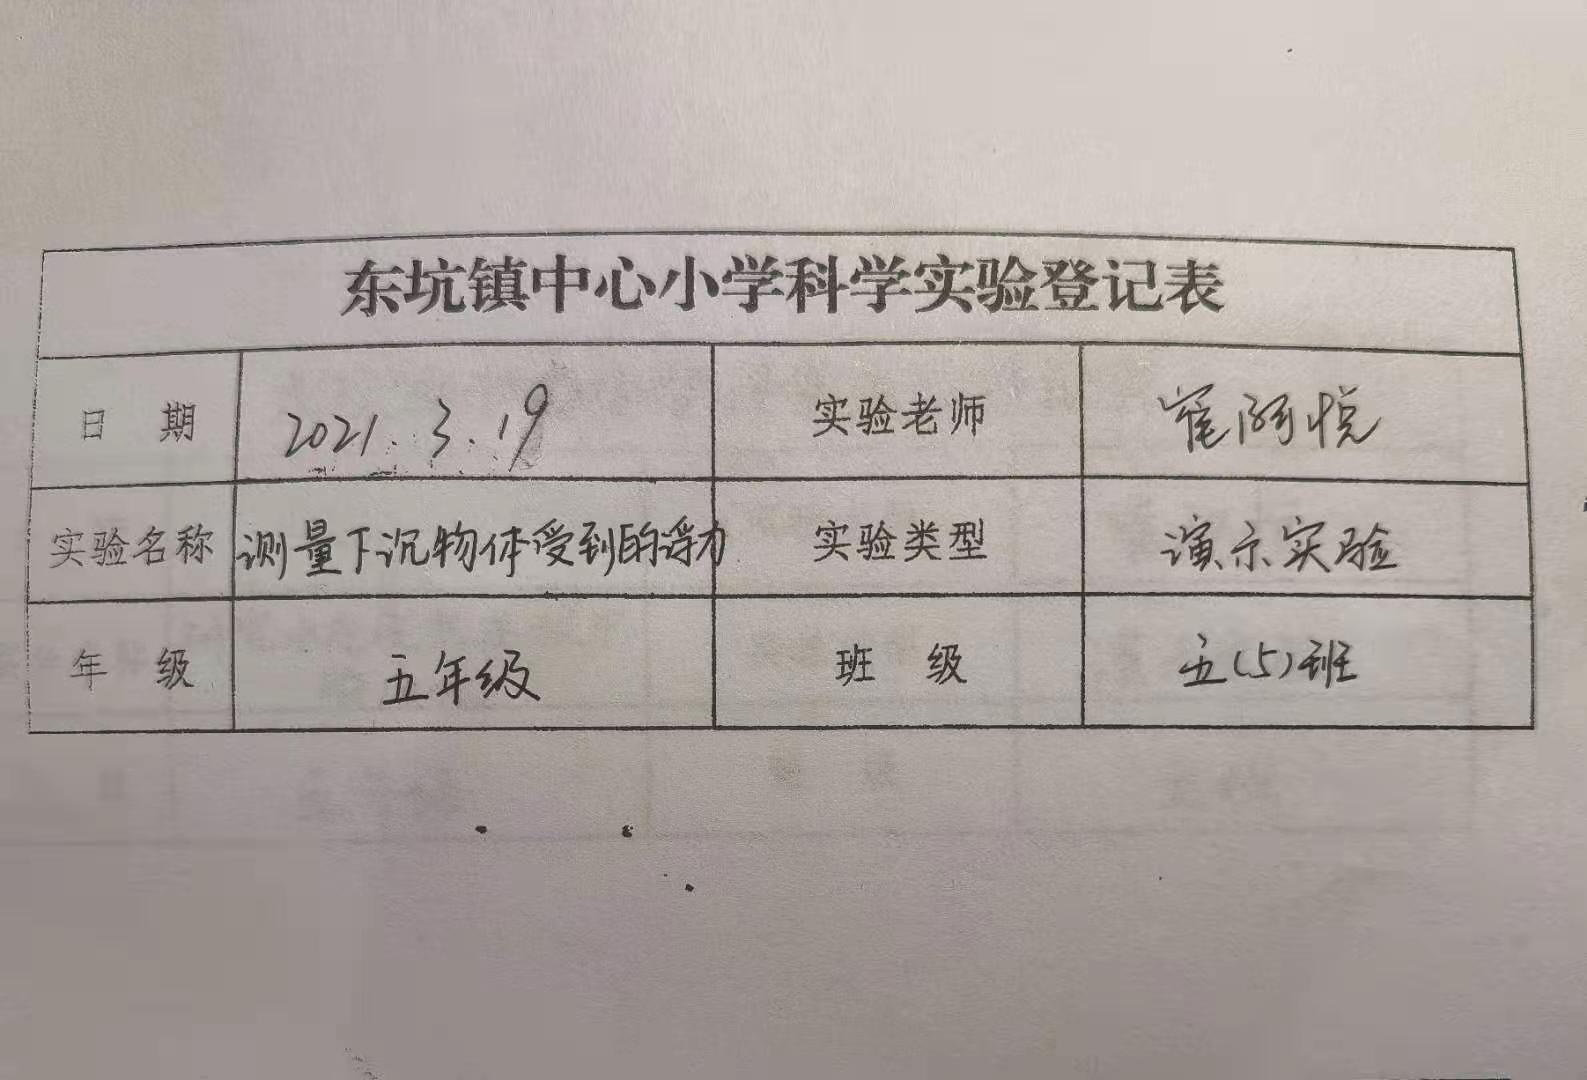 东坑镇中心小学科学实验登记表
日 期 2021.3.19 实验老师 崔阿悦
实验名称 测量下沉物体受到的浮力 实验类型 演示实验
年 级 五年级 班 级 五(5)班